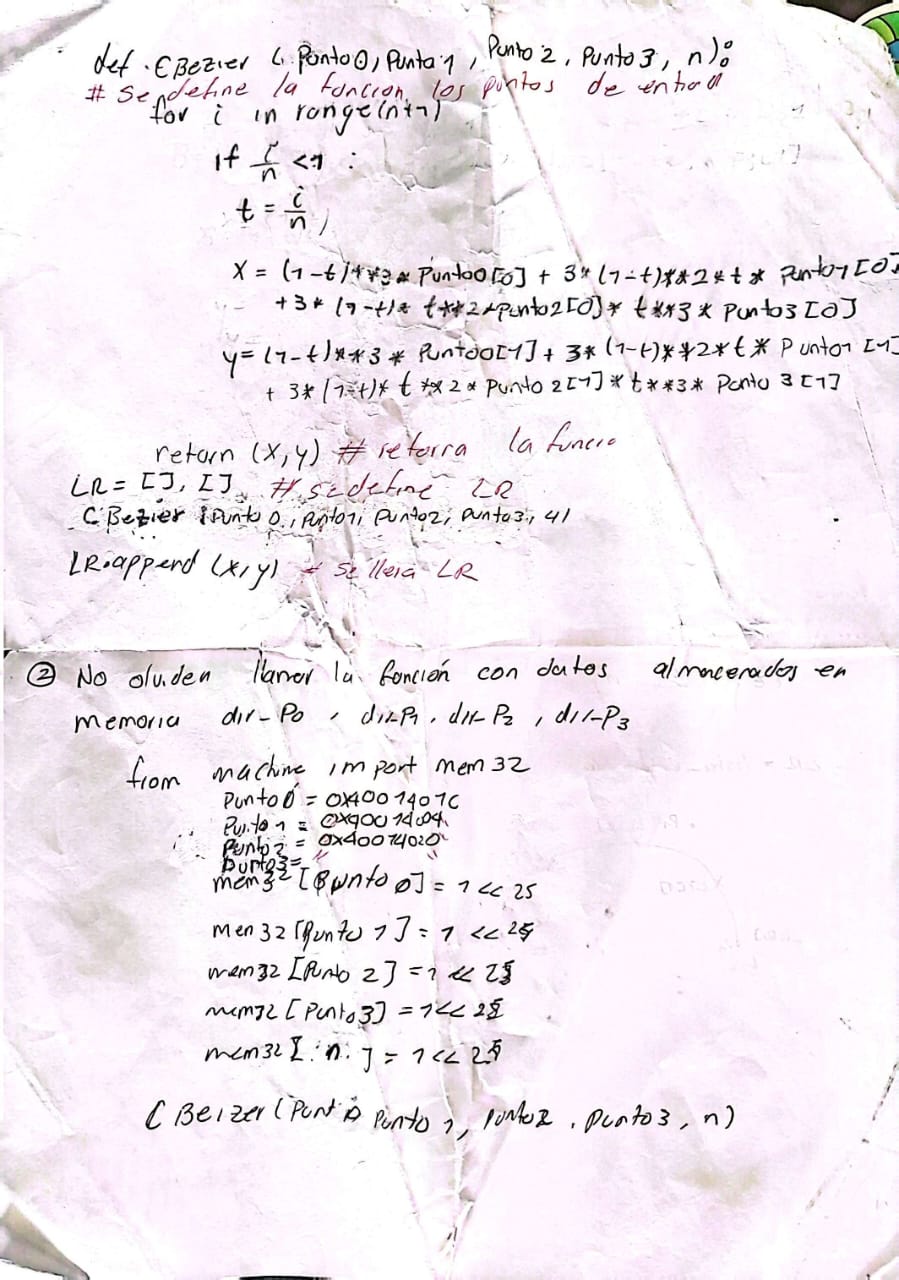 def CBezier ( Punto0, Punto1, Punto2, Punto3, n):
# Se define la funcion, los puntos de entrad
for i in range(n+1)
if i/n <1 :
t = i/n ,
x = (1-t)**3* Punto0[0] + 3*(1-t)**2*t* Punto1[0]
+3* (1-t)* t**2*Punto2[0]* t**3* Punto3[0]
y= (1-t)**3* Punto0[1]+ 3* (1-t)**2*t* Punto1[1]
+ 3* (1-t)* t**2* Punto2[1]* t**3* Punto 3[1]
return (x,y) # retorra la funcio
LR= [], [] # se define LR
CBezier (Punto 0, punto1, punto2, punto3, 4)
LR.append (x,y) # se llera LR
② No oluiden llamar la función con datos almacerados en
memoria dir-P0 , dir-P1, dir-P2 , dir-P3
from machine import mem32
Punto0 = 0X4001401C
Punto1 =
Punto2 = 0x40014020
Punto3= " "
mem32 [Punto 0] = 1<< 25
men32 [Punto 1] = 1 << 25
mem32 [Punto 2] =1 << 25
mem32 [Punto3] =1<< 25
mem32 [ n ] = 1<< 25
CBeizer (Punto Punto1, punto2, punto3, n)